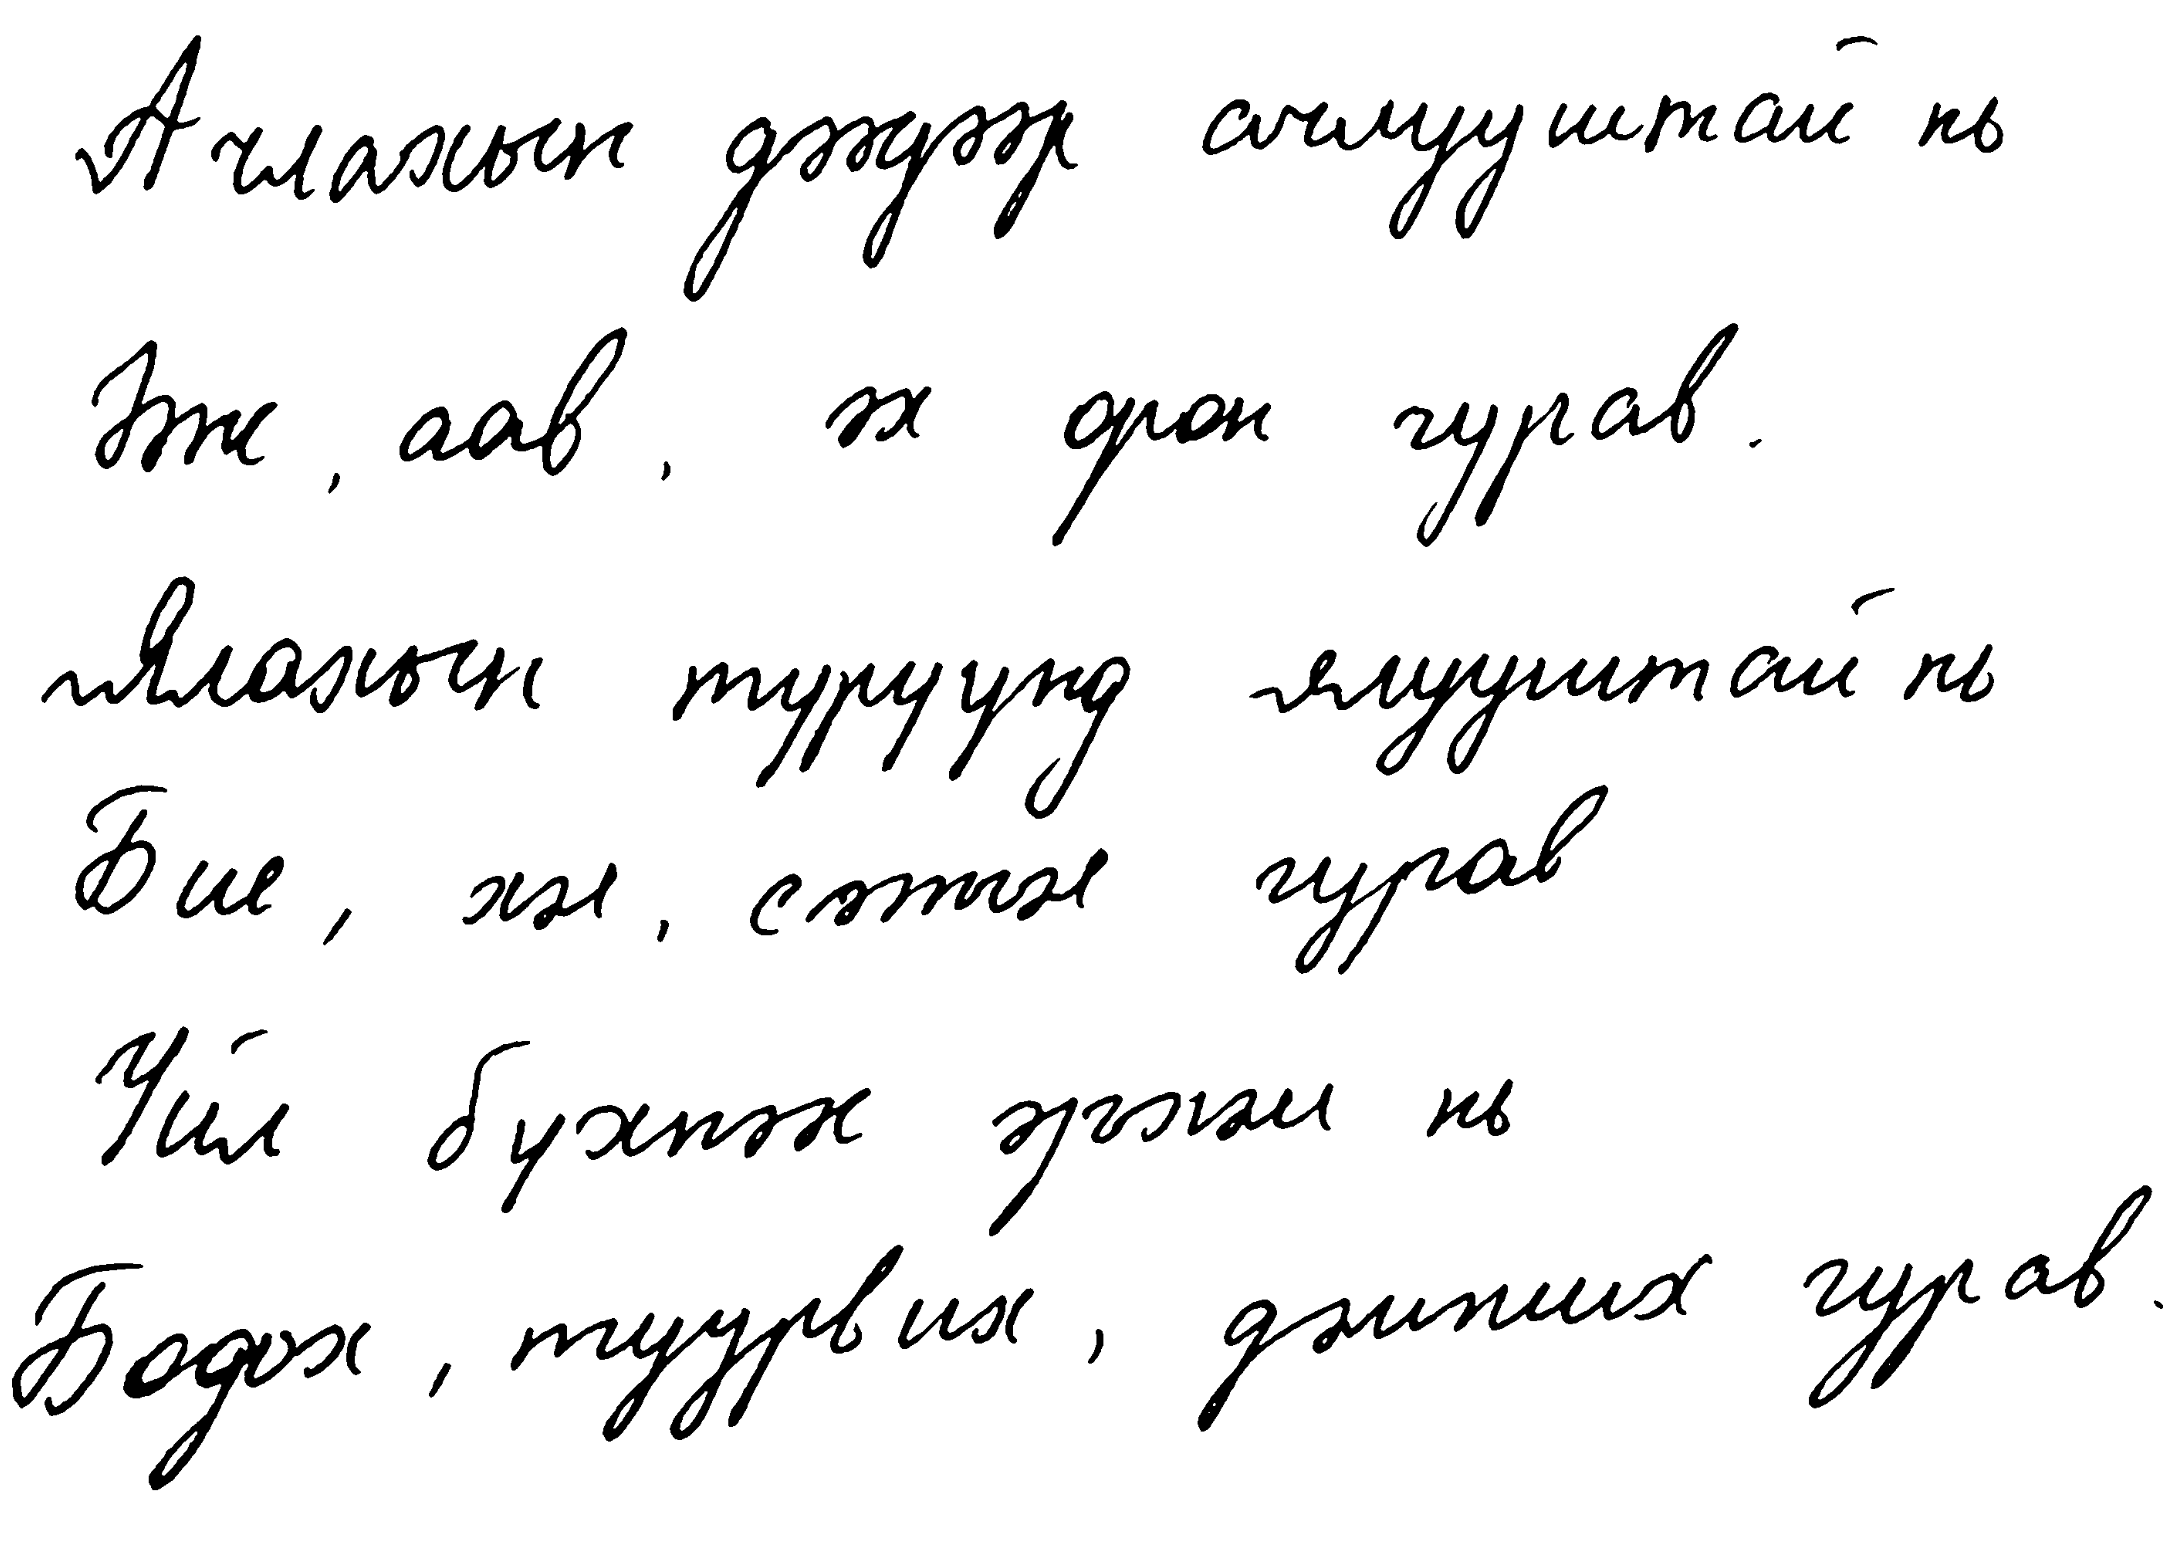 Ачлахын дээдээр ачлууштай нь
Ээж, аав, эх орон гурав.
Ялахын түрүүнд ялууштай нь
Бие, хэл, сэтгэл гурав
Үйл бүхнээ эрхэм нь
Бодох, туурвих, дэлших гурав.